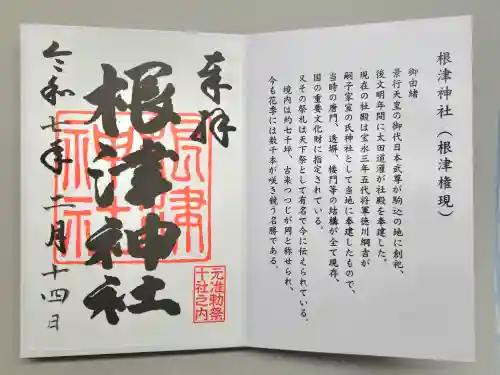 根津神社(根津権現)
御由緒
景行天皇の御代日本武尊が駒込の地に創祀、
後文明年間に太田道灌が社殿を奉建した。
現在の社殿は宝永三年五代将軍徳川綱吉が
嗣子家宣の氏神社として当地に奉建したもので、
当時の唐門、透塀、楼門等の結構が全て現存、
国の重要文化財に指定されている。
又その祭礼は天下祭として有名で今に伝えられている。
境内は約七千坪、古来つつじが岡と称せられ、
今も花季には数千本が咲き競う名勝である。
奉拝
根津神社
根津神社
元准勅祭
十社之内
令和七年二月十四日